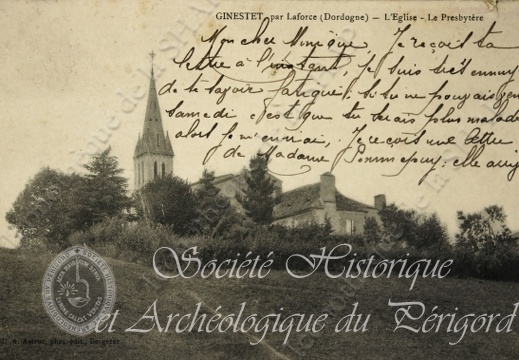 GINESTET par Laforce (Dordogne) — L'Eglise - Le Presbytère
Mon cher Je reçois ta
lettre à l'instant, Je suis très ennuy
de te savoir fatigué. si tu ne pouvais
samedi c'est que tu serais plus malade
alors Je reçois une lettre
de Madame elle
Société Historique
et Archéologique du Périgord
A. Astruc, phot. édit., Bergerac